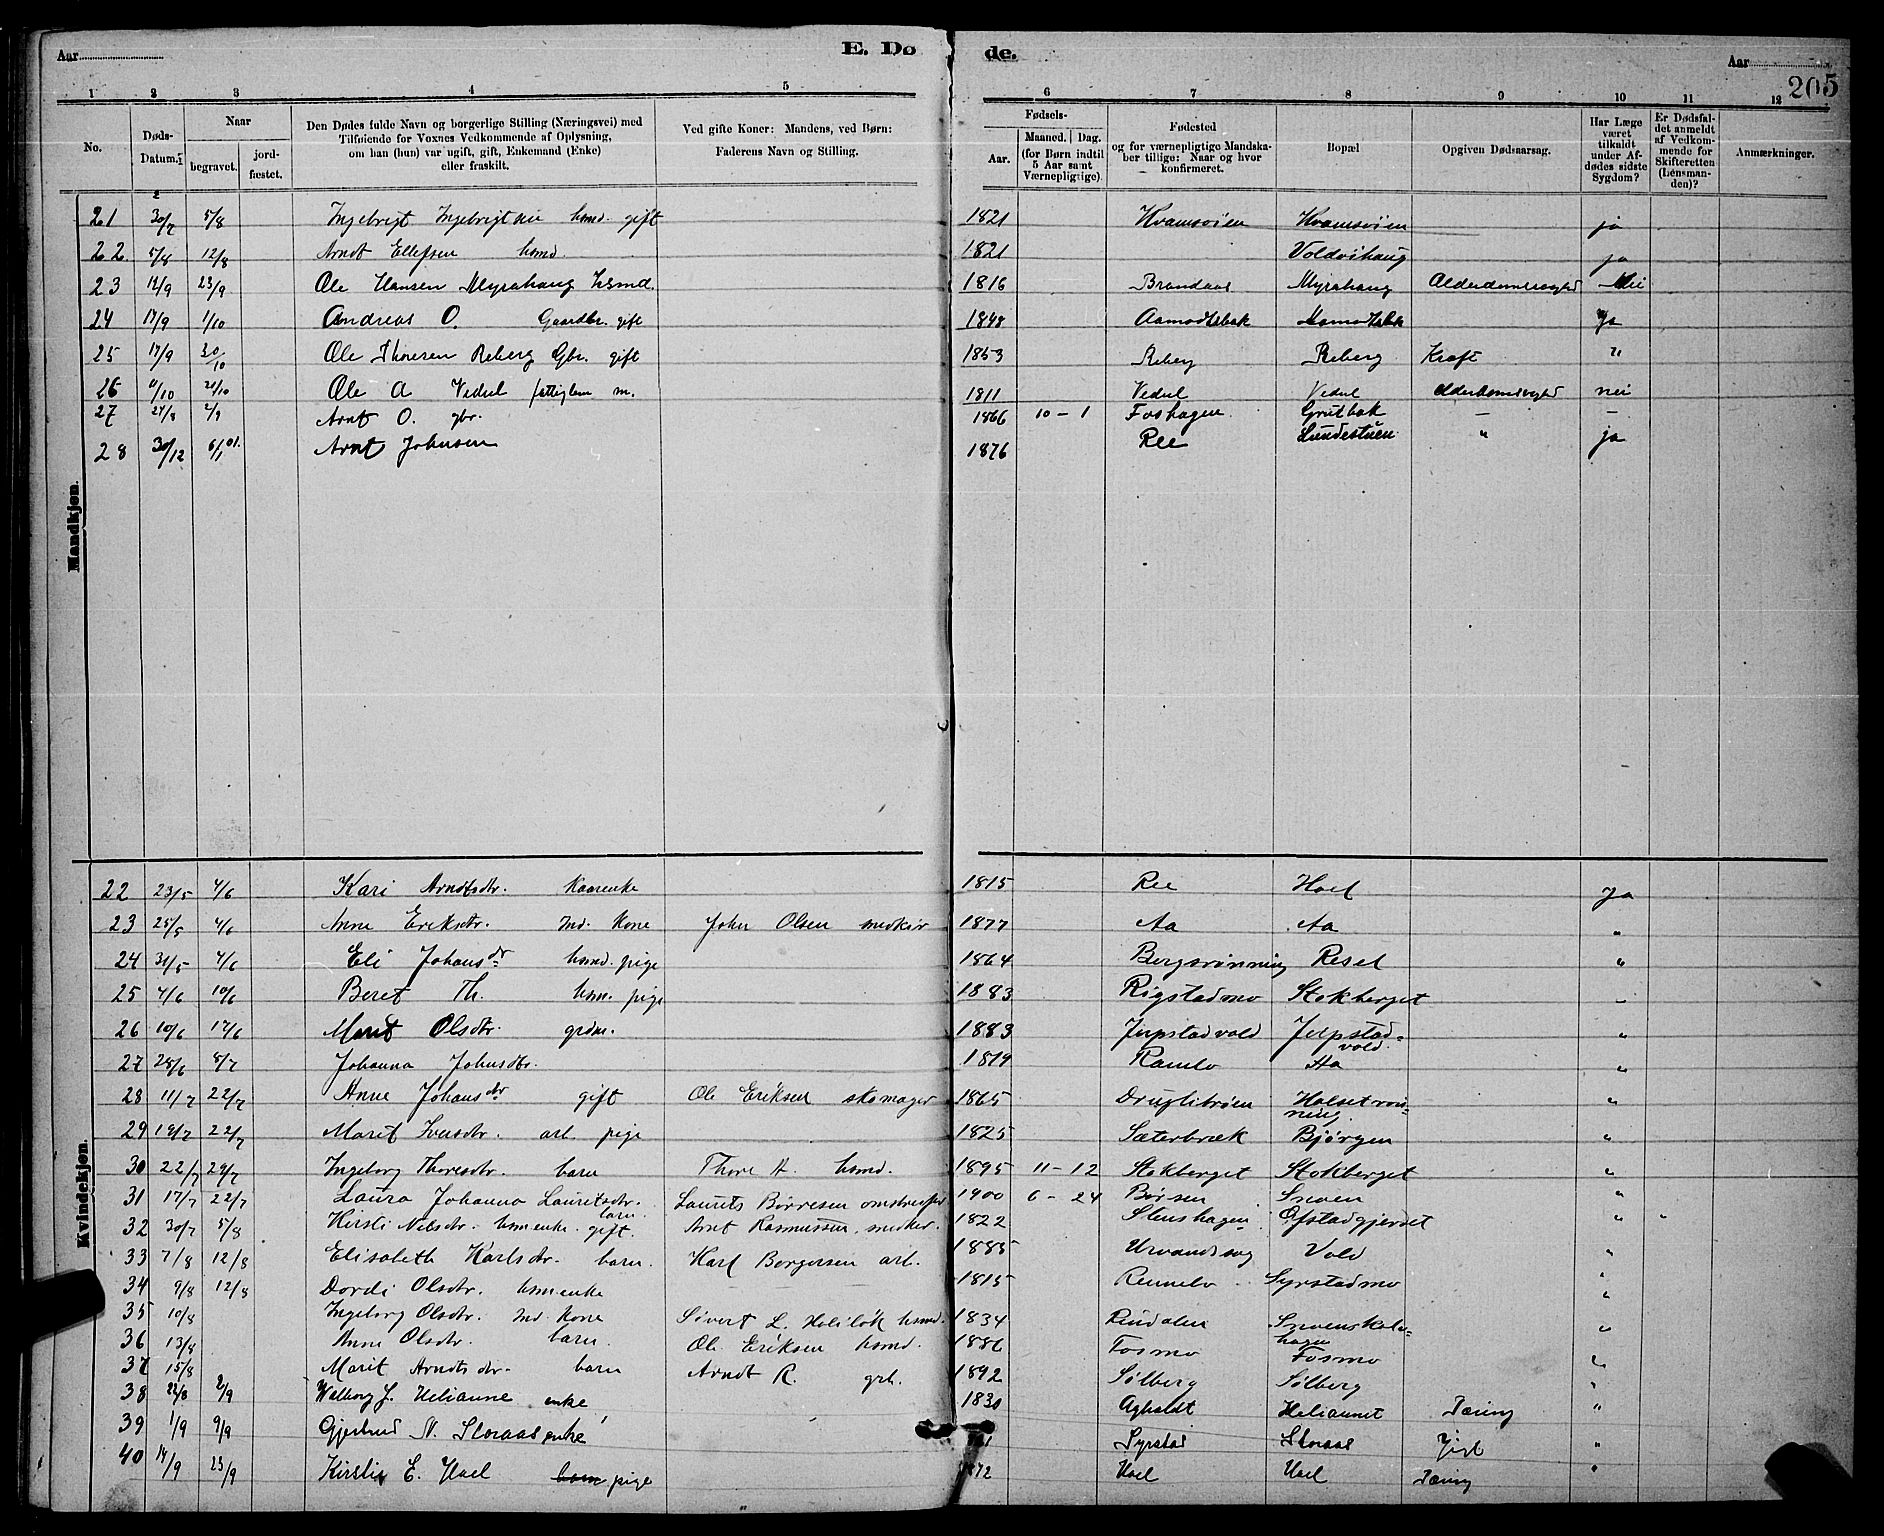 Aar
E. Dø
de.
Aar
205
1 2 3 4 5 6 7 8 9 10 11 12
No.
Døds-
Datum.
Naar
begravet.
jord-
fæstet.
Den Dødes fulde Navn og borgerlige Stilling (Næringsvei) med
Tilføiende for Voxnes Vedkommende af Oplysning,
om han (hun) var ugift, gift, Enkemand (Enke)
eller fraskilt.
Ved gifte Koner: Mandens, ved Børn:
Faderens Navn og Stilling.
Fødsels-
Aar.
Maaned. Dag.
(for Børn indtil
5 Aar samt
Værnepligtige).
Fødested
og for værnepligtige Mandska-
ber tillige: Naar og hvor
konfirmeret.
Bopæl
Opgiven Dødsaarsag.
Har Læge
været
tilkaldt
under Af-
dødes sidste
Sygdom?
Er Dødsfal-
det anmeldt
af Vedkom-
mende for
Skifteretten
(Lensman-
den)?
Anmærkninger.
Mandkjøn.
21 30/7 5/8 Ingebrigt Ingebrigtsen hsmd. gift 1821 Kvamsøien Kvamsøien ja
22 5/8 12/8 Arndt Ellefsen hsmd. 1821 Voldvihaug ja
23 12/9 23/9 Ole Hansen Myrahaug Hsmd. 1816 Brandaas Myrahaug Alderdomssvaghed Nei
24 17/9 1/10 Andreas O. Gaardbr. gift 1848 Aamodtsbak Aamodtsbak Ja
25 17/9 30/10 Ole Thoresen Reberg Gbr. gift 1853 Reberg Reberg Kræft "
26 11/10 21/10 Ole A Vedul fattiglem m. 1811 Vedul Vedul Alderdomssvaghed nei
27 24/8 2/9 Arnt O. gbr. 1866 10 - 1 Foshagen Grutbak - -
28 30/12 6/1 01. Arnt Johnsen 1876 Ree Lundestuen " ja
Kvindekjøn.
22 23/5 4/6 Kari Arndtsdtr. Kaarenke 1815 Ree Hoel Ja
23 25/5 4/6 Anne Eriksdtr. Ind. Kone John Olsen snedker 1877 Aa Aa "
24 31/5 4/6 Eli Johansdr hsmd. pige 1864 Bergsrønning Reset "
25 4/6 10/6 Beret Th. hsm. pige 1883 Rigstadmo Stokberget
26 10/6 17/6 Marit Olsdtr. grdm. 1883 Jerpstadvold Jerpstad-
vold. "
27 28/6 8/7 Johanna Johnsdtr. 1819 Ramlo Aa "
28 11/7 22/7 Anne Johansdr gift Ole Eriksen skomager 1865 Druglitrøen Holsetrøn-
ning. "
29 18/7 22/7 Marit Iversdtr. arb. pige 1825 Sæterbræk Bjørgen "
30 22/7 29/7 Ingeborg Thoresdtr. barn Thore A. hsmd. 1895 11 - 12 Stokberget Stokberget "
31 17/7 22/7 Laura Johanna Lauritsdtr.
barn Laurits Børresen 1900 6 - 24 Børsen Snoen "
32 30/7 5/8 Kirsti Nilsdtr. hsmenke. gift. Arnt Rasmussen, snedker. 1822 Stenshagen Ofstadgjerdet " "
33 7/8 12/8 Elisabeth Karlsdtr. barn. Karl Borgersen arb. 1885 Urvandsvog Vold "
34 9/8 12/8 Dordi Olsdtr. hsmenke 1815 Rennebo Syrstadmo "
35 10/8 Ingeborg Olsdtr. Ind. Kone Sivert L. Holiløk hsmd. 1834 Rindalen Snoenskole-
hagen "
36 13/8 Anne Olsdtr. barn. Ole Eriksen hsmd. 1886 Fosmo Fosmo "
37 15/8 Marit Arndtsdtr. barn Arndt R. grb. 1892 Sølberg Sølberg "
38 22/8 2/9 Walborg J. Helianne enke 1830 Agholdt Heliannet Tæring "
39 1/9 9/9 Gjertrud N. Storaas enke Syrstad Storaas Gigt "
40 14/9 23/9 Kirsti E. Hoel barn pige 1872 Hoel Hoel Tæring "